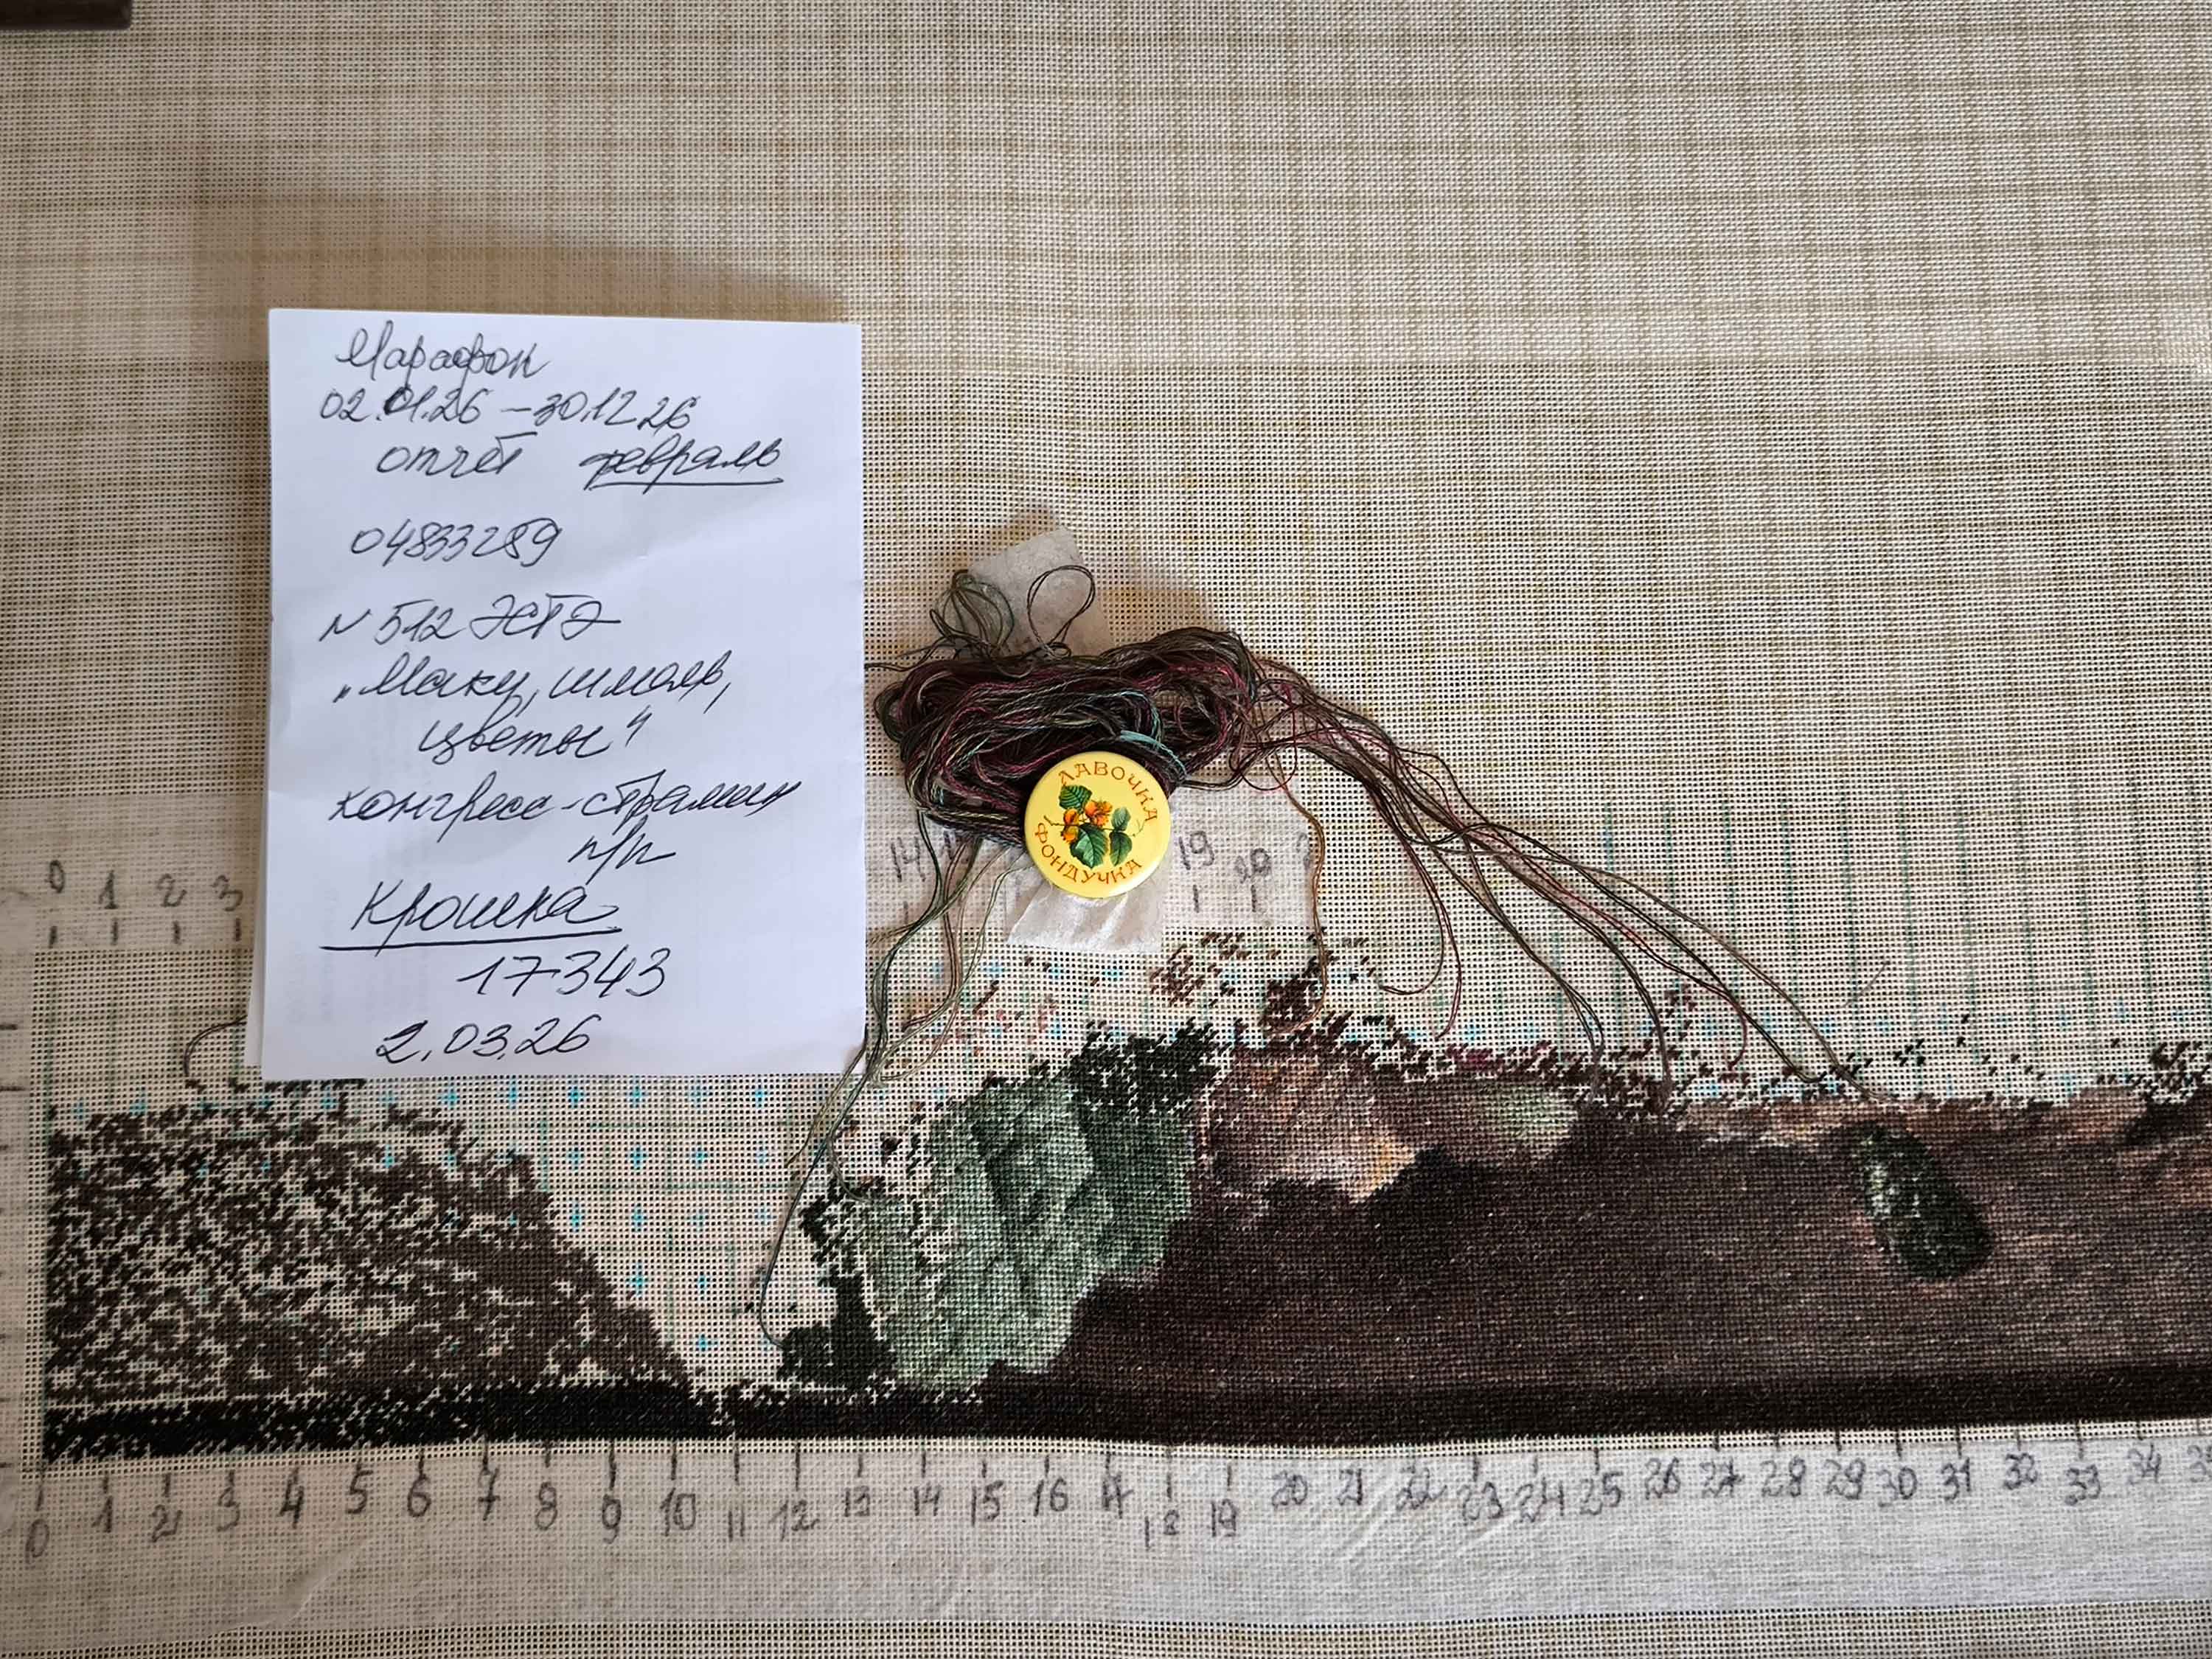 Марафон
02.01.26 – 30.12 26
отчёт февраль
04833289
N 512 ЭСТЭ
„Маки, шмель,
цветы"
конгресс-страмин
п/п
Крошка
17343
2.03.26
ЛАВОЧКА
ФОНДУЧКА
0 1 2 3
14 19 20
0 1 2 3 4 5 6 7 8 9 10 11 12 13 14 15 16 17 18 19 20 21 22 23 24 25 26 27 28 29 30 31 32 33 34